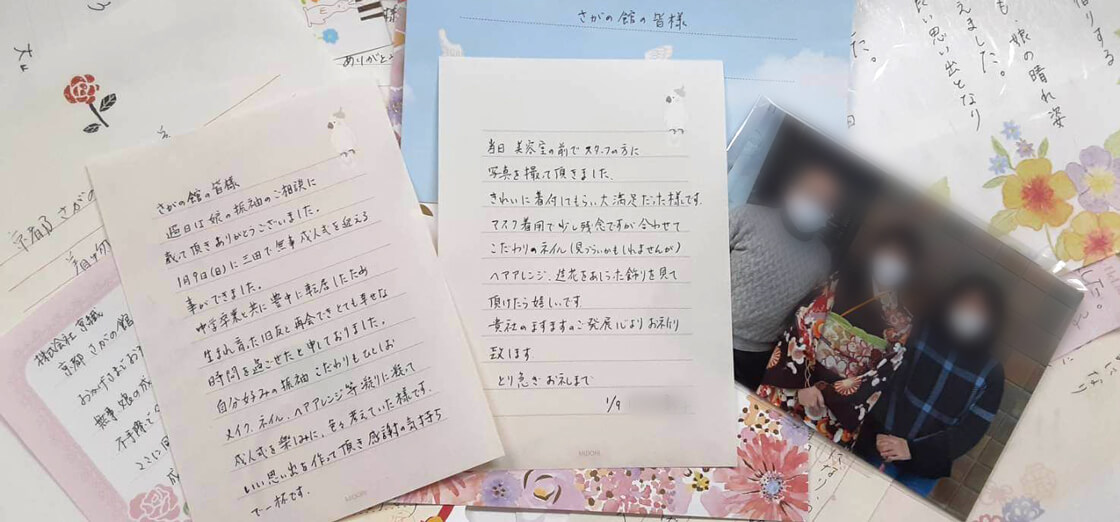 さがの館の皆様
過日は娘の振袖のご相談に
載って頂きありがとうございました。
1月9日(日)に三田で無事成人式を迎える
事ができました。
中学卒業と共に豊中に転居したため
生まれ育った旧友と再会できとても幸せな
時間を過ごせたと申しておりました。
自分好みの振袖 こだわりもなしお
メイク、ネイル、ヘアアレンジ等 凝りに凝って
成人式を楽しみに、色々考えていた様です。
いい思い出を作って頂き感謝の気持ち
で一杯です。
MIDORI
当日 美容室の前でスタッフの方に
写真を撮って頂きました。
きれいに着付してもらい大満足だった様です。
マスク着用で少し残念ですが合わせて
こだわりのネイル(見づらいかもしれませんが)
ヘアアレンジ、造花をあしらった飾りを見て
頂けたら嬉しいです。
貴社のますますのご発展心よりお祈り
致します
とり急ぎお礼まで
1/9
MIDORI
さがの館の皆様
ありがとう
借りする
も、娘の晴れ姿
えました。
良い思い出となり
た。
京都 さがの
株式会社 京織
京都 さがの館
おかげさまで
無事 娘の成